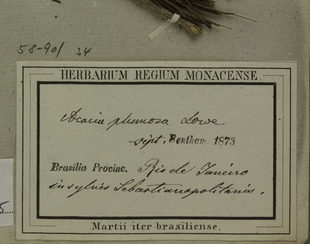 58-90/ 34
HERBARIUM REGIUM MONACENSE.
Acacia plumosa Lowe
sipt, Bentham. 1873
Brasilia Provinc. Rio de Janéiro
in sylvis Sebastianopolitanis.
5
Martii iter brasiliense.